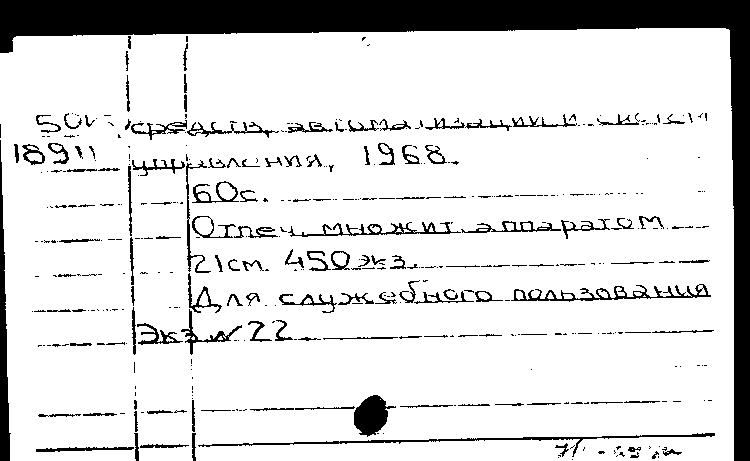 средств, автоматизации и систем
18911 управления, 1968.
60с.
Отпеч. множит. аппаратом
21см. 450экз.
Для служебного пользования
Экз.№22.